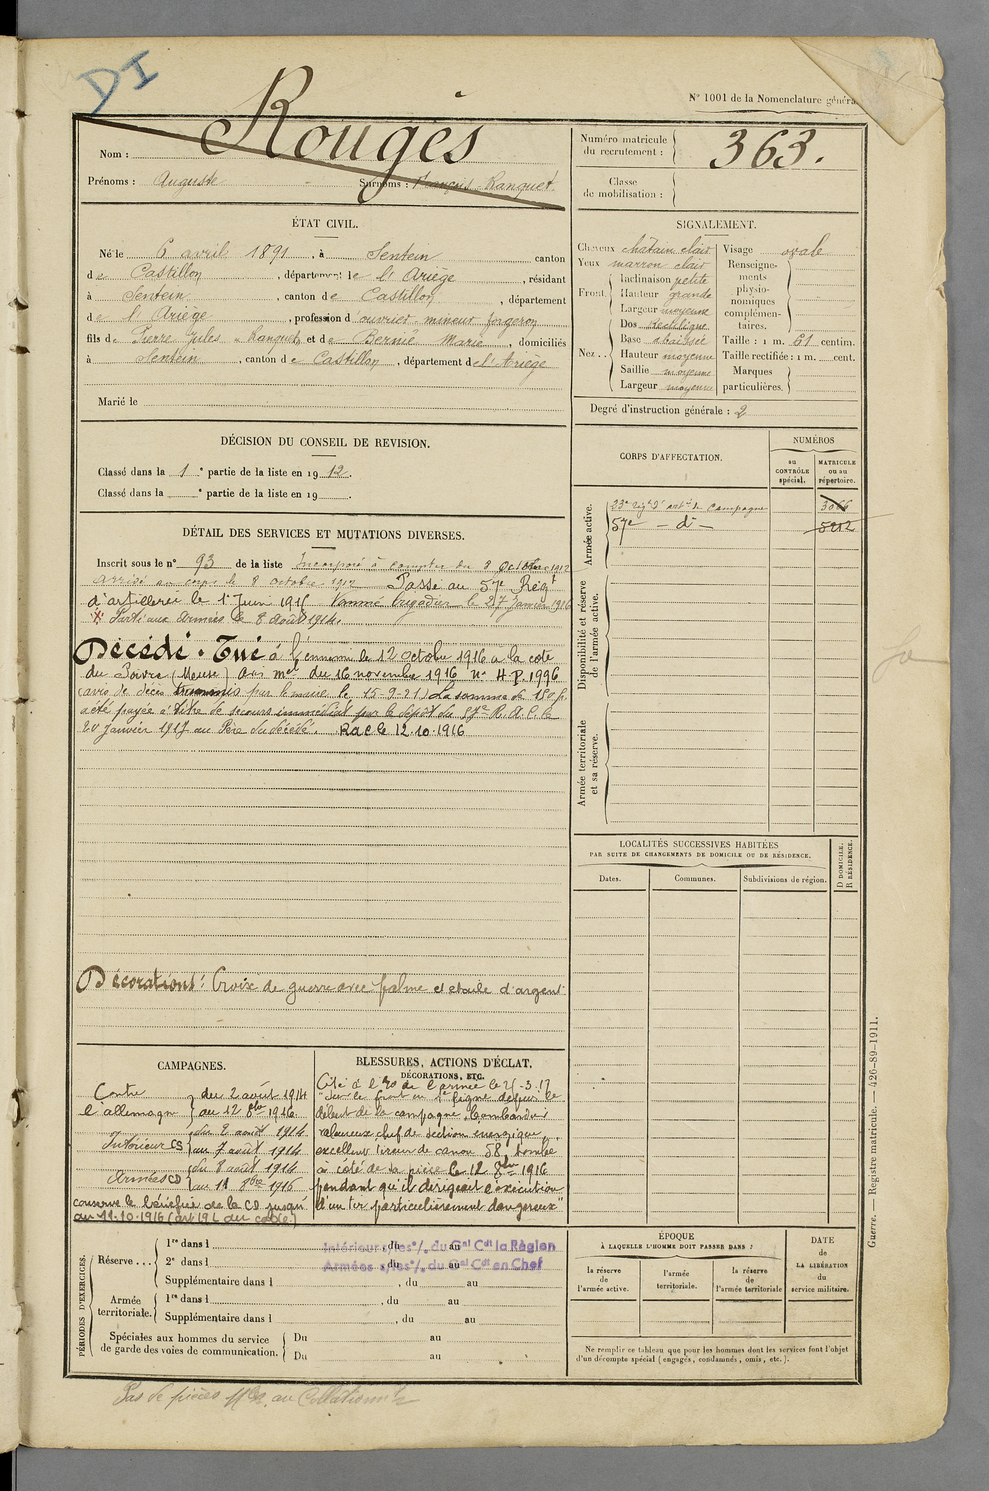 DI
N° 1001 de la Nomenclature généra
Nom : Rougès
Prénoms : Auguste Surnoms : François Ranquet
Numéro matricule du recrutement : 363.
Classe de mobilisation :
ÉTAT CIVIL.
Né le 6 avril 1891, à Sentein canton
de Castillon, département de l'Ariège, résidant
à Sentein, canton de Castillon, département
de l'Ariège, profession d'ouvrier mineur forgeron
fils de Pierre Jules Ranquet et de Bernié Marie, domiciliés
à Sentein, canton de Castillon, département de l'Ariège
Marié le
SIGNALEMENT.
Cheveux chatain clair
Yeux marron clair
Front Inclinaison petite
Hauteur grande
Largeur moyenne
Nez Dos rectiligne
Base abaissée
Hauteur moyenne
Saillie moyenne
Largeur moyenne
Visage ovale
Renseignements physionomiques complémentaires.
Taille : 1 m. 61 centim.
Taille rectifiée : 1 m. cent.
Marques particulières.
Degré d'instruction générale : 2
DÉCISION DU CONSEIL DE REVISION.
Classé dans la 1e partie de la liste en 1912.
Classé dans la e partie de la liste en 19 .
CORPS D'AFFECTATION.
NUMÉROS
au CONTRÔLE spécial.
MATRICULE ou au répertoire.
Armée active.
23e rég. d'art. de campagne 3066
57e - d° - 5212
Disponibilité et réserve de l'armée active.
Armée territoriale et sa réserve.
DÉTAIL DES SERVICES ET MUTATIONS DIVERSES.
Inscrit sous le n° 93 de la liste Incorporé à compter du 8 Octobre 1912
arrivé au corps le 8 octobre 1912 Passé au 57e Régt
d'artillerie le 1er Juin 1915 Nommé brigadier le 27 Janvier 1916
Parti aux Armées le 8 Août 1914.
Décédé. Tué à l'ennemi le 12 octobre 1916 a la cote
du Poivre (Meuse) Avis mel du 16 novembre 1916 N° H.P. 1996
(avis de décès transmis par le maire le 15-9-21) La somme de 150 f.
a été payée à titre de secours immédiat par le dépôt du 57e R.A.C. le
20 Janvier 1917 au Père du décédé. RAC le 12.10.1916
Décorations : Croix de guerre avec palme et etoile d'argent
LOCALITÉS SUCCESSIVES HABITÉES
PAR SUITE DE CHANGEMENTS DE DOMICILE OU DE RÉSIDENCE.
Dates. Communes. Subdivisions de région. D DOMICILE. R RÉSIDENCE.
CAMPAGNES.
Contre l'allemagne du 2 août 1914
au 12 8bre 1916.
Intérieur CS du 2 août 1914
au 7 août 1914
Armées CD du 8 août 1914
au 11 8bre 1916
conserve le bénéfice de la CD jusqu'
au 11.10.1916 (art 19 L du code)
BLESSURES, ACTIONS D'ÉCLAT,
DÉCORATIONS, ETC.
Cité à l'
de l'armée le
"Sur le front en 1e ligne depuis le
début de la campagne Bombardier
valeureux chef de section énergique,
excellent tireur de canon 58, tombé
à côté de sa pièce le 12 8bre 1916
pendant qu'il dirigeait l'exécution
d'un tir particulièrement dangereux"
PÉRIODES D'EXERCICES.
Réserve... 1re dans l , du au
2e dans l , du au
Supplémentaire dans l , du au
Intérieur s/les°/s du Gal Cdt la Région
Armées s/les°/s du Gal Cdt en Chef
Armée territoriale. 1re dans l , du au
Supplémentaire dans l , du au
Spéciales aux hommes du service de garde des voies de communication. Du au
Du au
ÉPOQUE
À LAQUELLE L'HOMME DOIT PASSER DANS :
la réserve de l'armée active.
l'armée territoriale.
la réserve de l'armée territoriale
DATE de LA LIBÉRATION du service militaire.
Ne remplir ce tableau que pour les hommes dont les services font l'objet
d'un décompte spécial (engagés, condamnés, omis, etc.).
Guerre. — Registre matricule. — 426-89-1911.
Pas de pièces